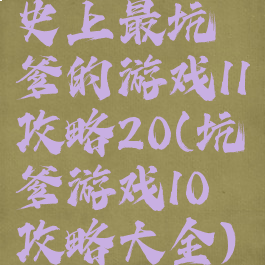 史上最坑
爹的游戏11
攻略20(坑
爹游戏10
攻略大全)